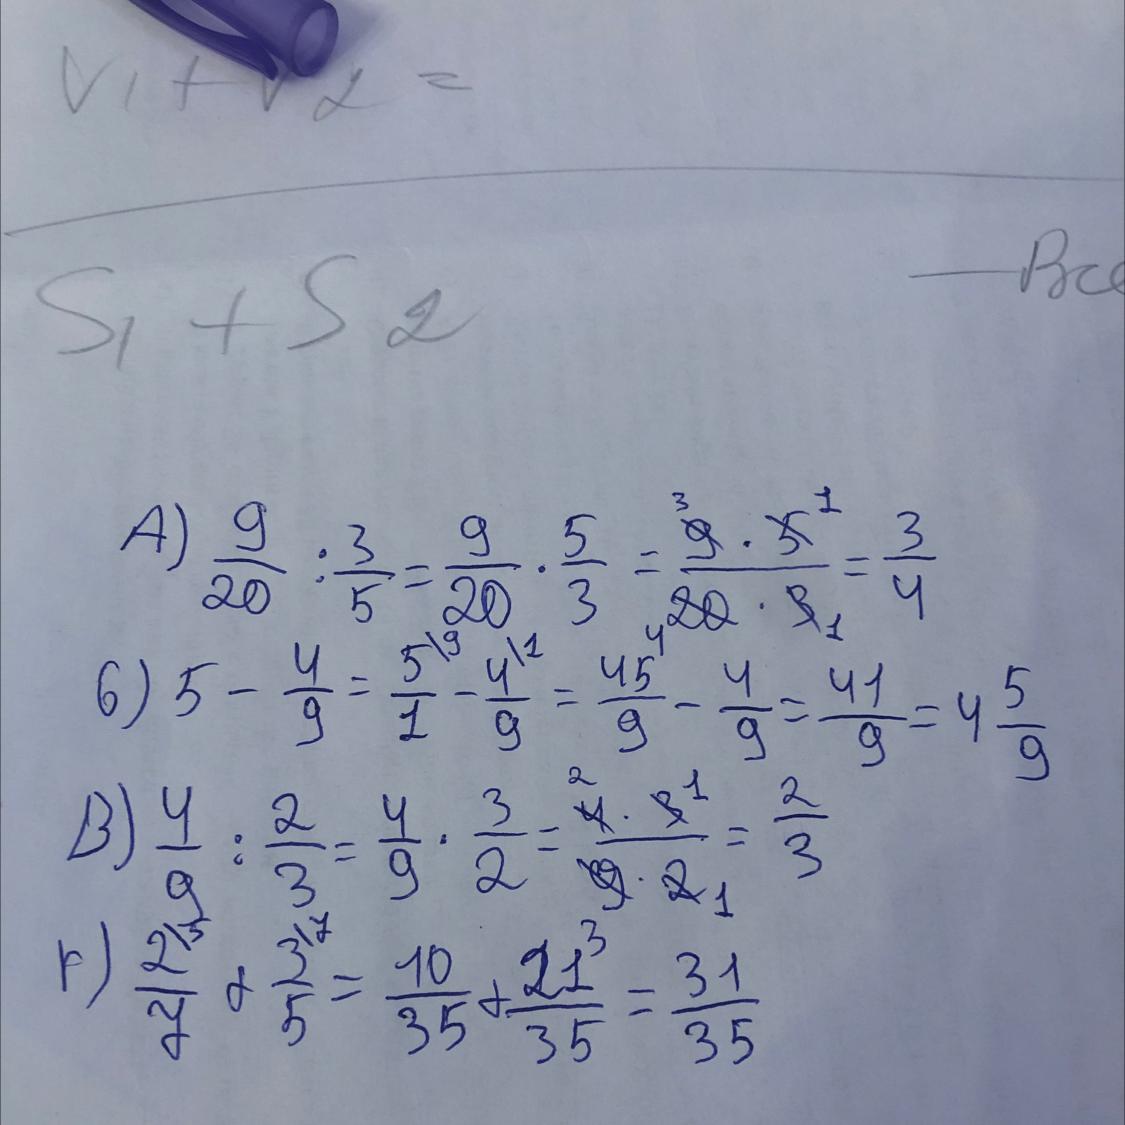 V1 + V2 =
S1 + S2
— Все
А) 9/20 : 3/5 = 9/20 · 5/3 = 9 · 5 / 20 · 3 = 3/4
б) 5 - 4/9 = 5/1 - 4/9 = 45/9 - 4/9 = 41/9 = 4 5/9
В) 4/9 : 2/3 = 4/9 · 3/2 = 4 · 3 / 9 · 2 = 2/3
г) 2/7 + 3/5 = 10/35 + 21/35 = 31/35